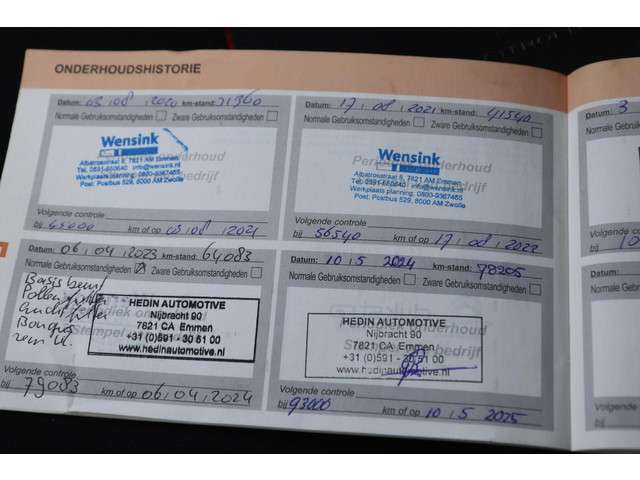 ONDERHOUDSHISTORIE
Datum: 03 , 08 , 2020 km-stand: 31360
Normale Gebruiksomstandigheden Zware Gebruiksomstandigheden
Wensink
Albatrosstraat 5, 7821 AM Emmen
Tel. 0591-660640 info@wensink.nl
Werkplaats planning: 0800-9367465
Post: Postbus 529, 8000 AM Zwolle
Volgende controle
bij km of op 03 , 08 , 2021
Datum: 17 , 08 , 2021 km-stand: 41540
Normale Gebruiksomstandigheden Zware Gebruiksomstandigheden
Wensink
Albatrosstraat 5, 7821 AM Emmen
Tel. 0591-660640 info@wensink.nl
Werkplaats planning: 0800-9367465
Post: Postbus 529, 8000 AM Zwolle
Volgende controle
bij 56540 km of op 17 , 08 , 2022
Datum: 06 , 04 , 2023 km-stand: 64083
Normale Gebruiksomstandigheden Zware Gebruiksomstandigheden
Basis beurt
Pollenfilter
HEDIN AUTOMOTIVE
Nijbracht 90
7821 CA Emmen
+31 (0)591 - 30 61 00
www.hedinautomotive.nl
Volgende controle
bij 79083 km of op 06 , 04 , 2024
Datum: 10 , 5 , 2024 km-stand: 78205
Normale Gebruiksomstandigheden Zware Gebruiksomstandigheden
HEDIN AUTOMOTIVE
Nijbracht 90
7821 CA Emmen
+31 (0)591 - 30 61 00
www.hedinautomotive.nl
Volgende controle
bij 93000 km of op 10 , 5 , 2025
Datum: 3
Normale Ge
Volgende
bij
Datum:
Normale Ge
Volgende
bij